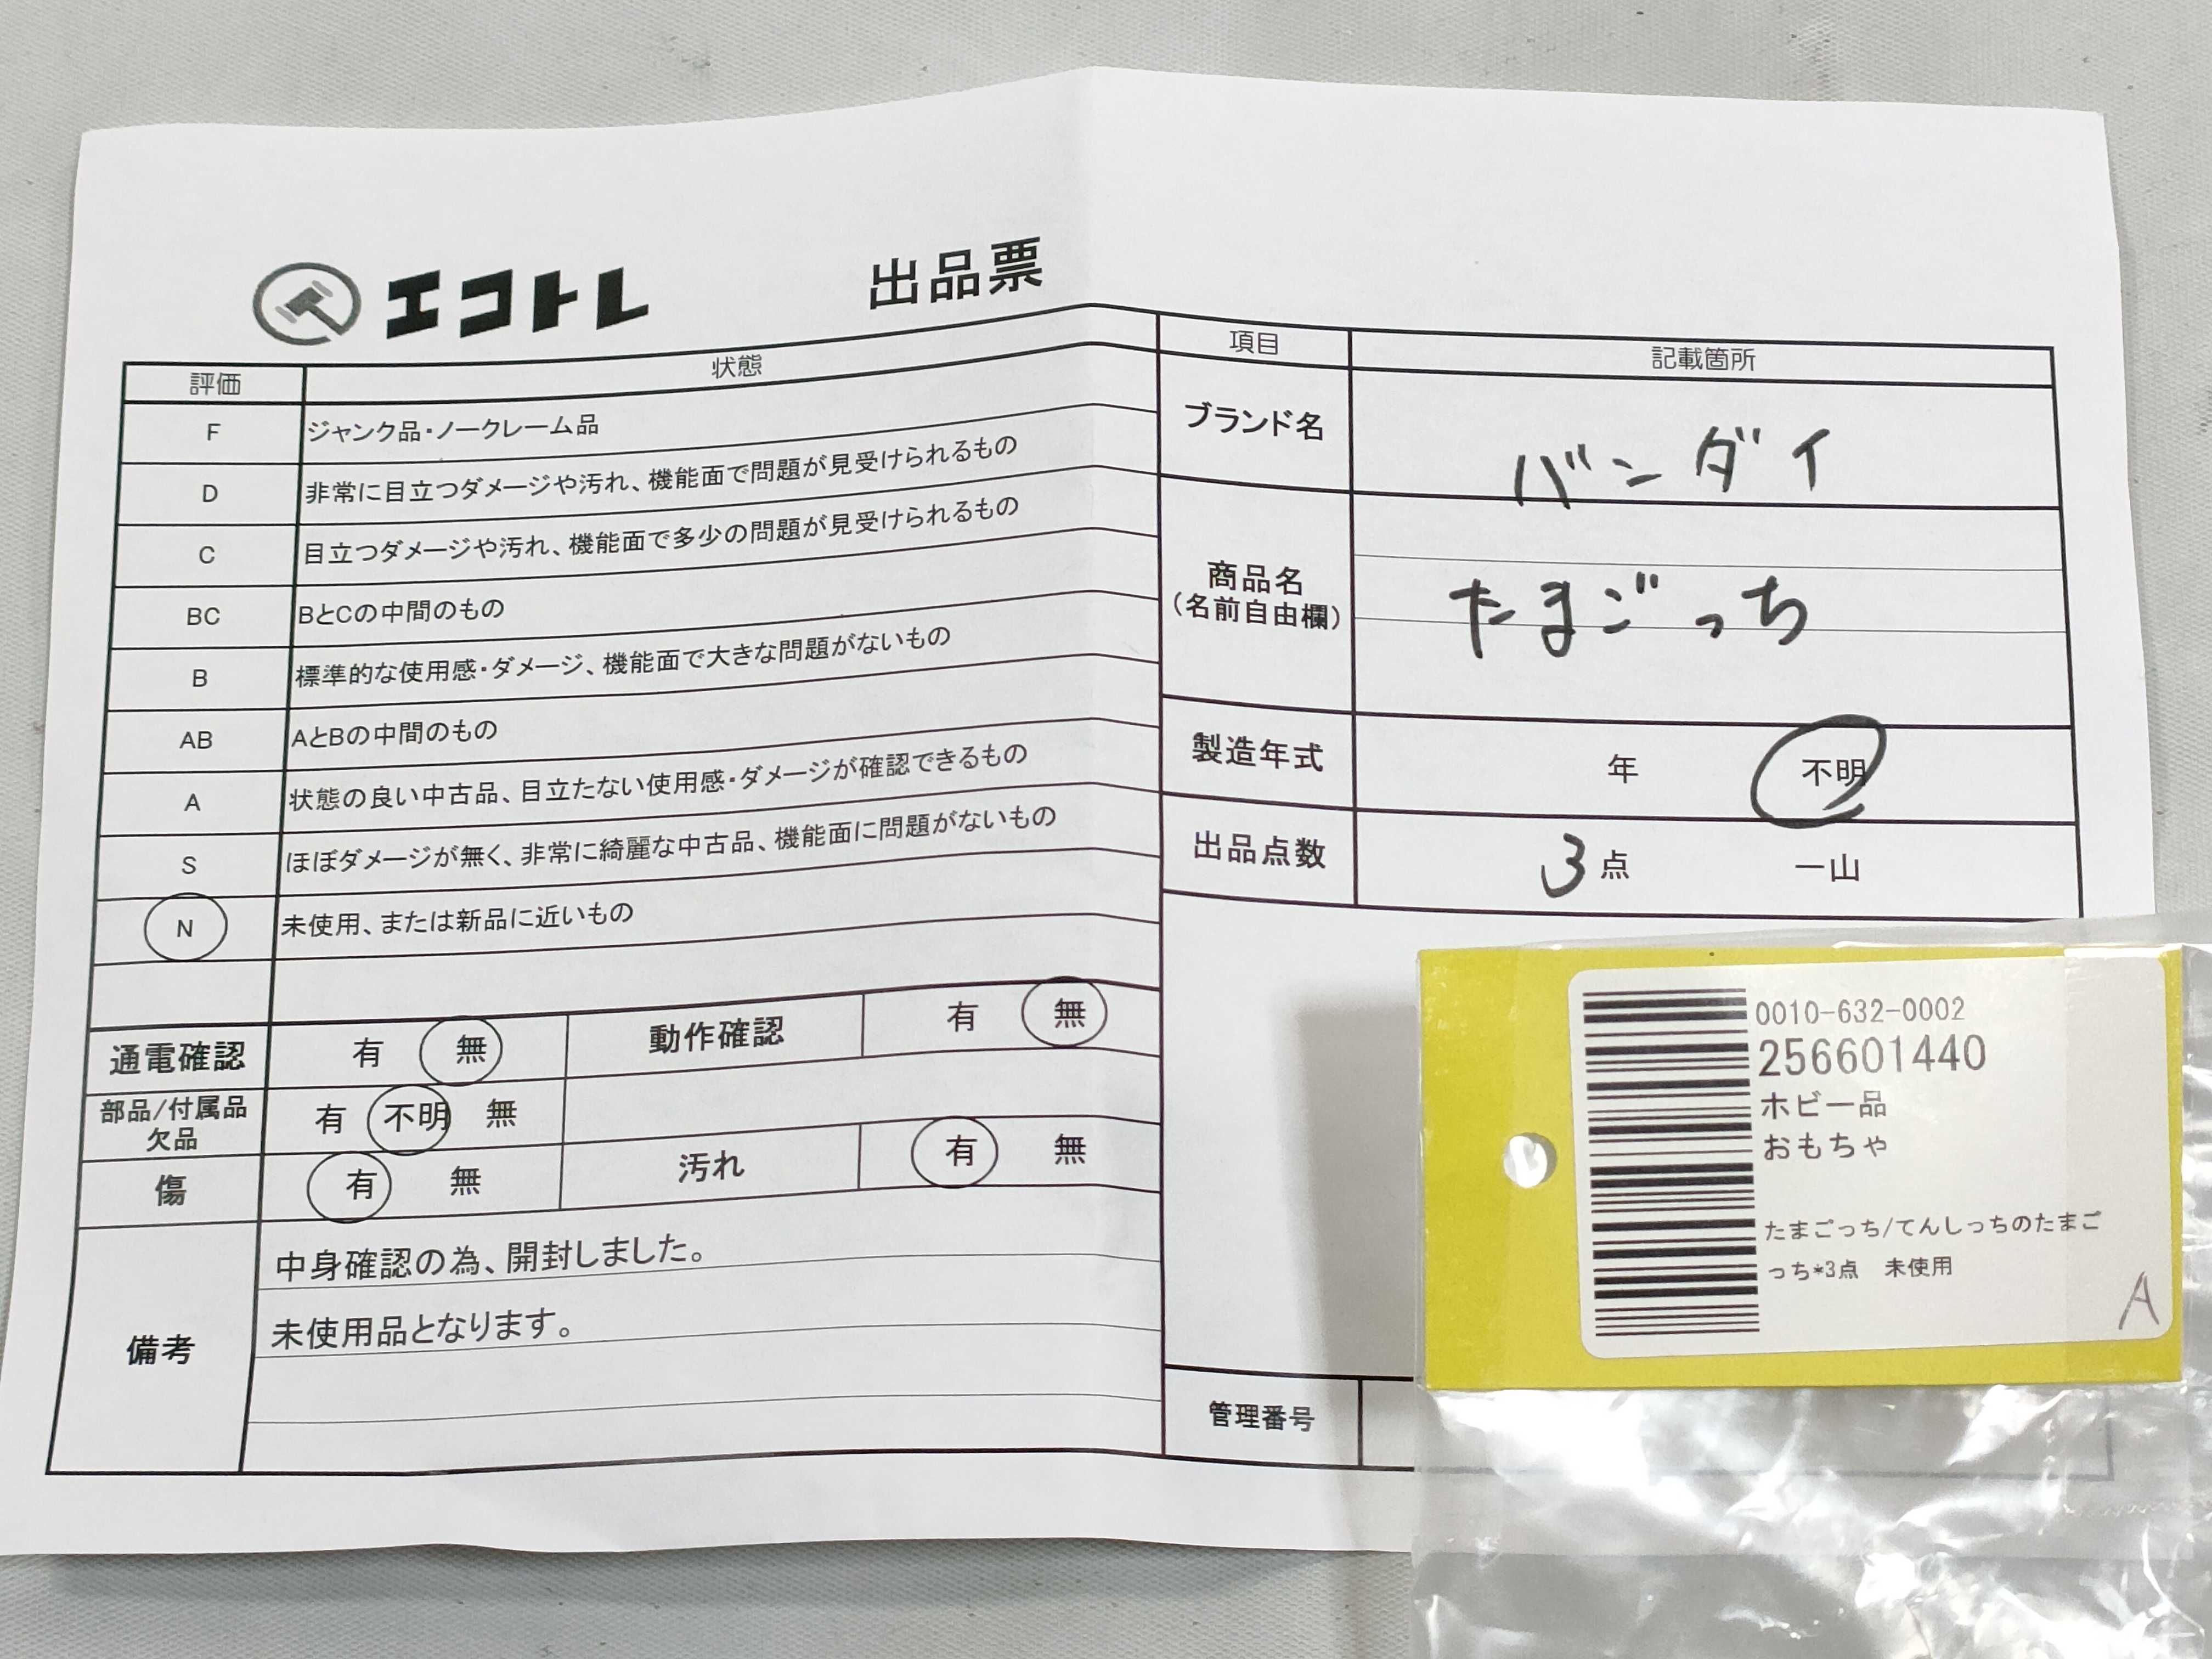 エコトレ 出品票
評価 状態
F ジャンク品・ノークレーム品
D 非常に目立つダメージや汚れ、機能面で問題が見受けられるもの
C 目立つダメージや汚れ、機能面で多少の問題が見受けられるもの
BC BとCの中間のもの
B 標準的な使用感・ダメージ、機能面で大きな問題がないもの
AB AとBの中間のもの
A 状態の良い中古品、目立たない使用感・ダメージが確認できるもの
S ほぼダメージが無く、非常に綺麗な中古品、機能面に問題がないもの
N 未使用、または新品に近いもの
通電確認 有 無 動作確認 有 無
部品/付属品
欠品 有 不明 無
傷 有 無 汚れ 有 無
備考
中身確認の為、開封しました。
未使用品となります。
項目 記載箇所
ブランド名 バンダイ
商品名
(名前自由欄)
たまごっち
製造年式 年 不明
出品点数 3点 一山
管理番号
0010-632-0002
256601440
ホビー品
おもちゃ
たまごっち/てんしっちのたまご
っち*3点 未使用
A